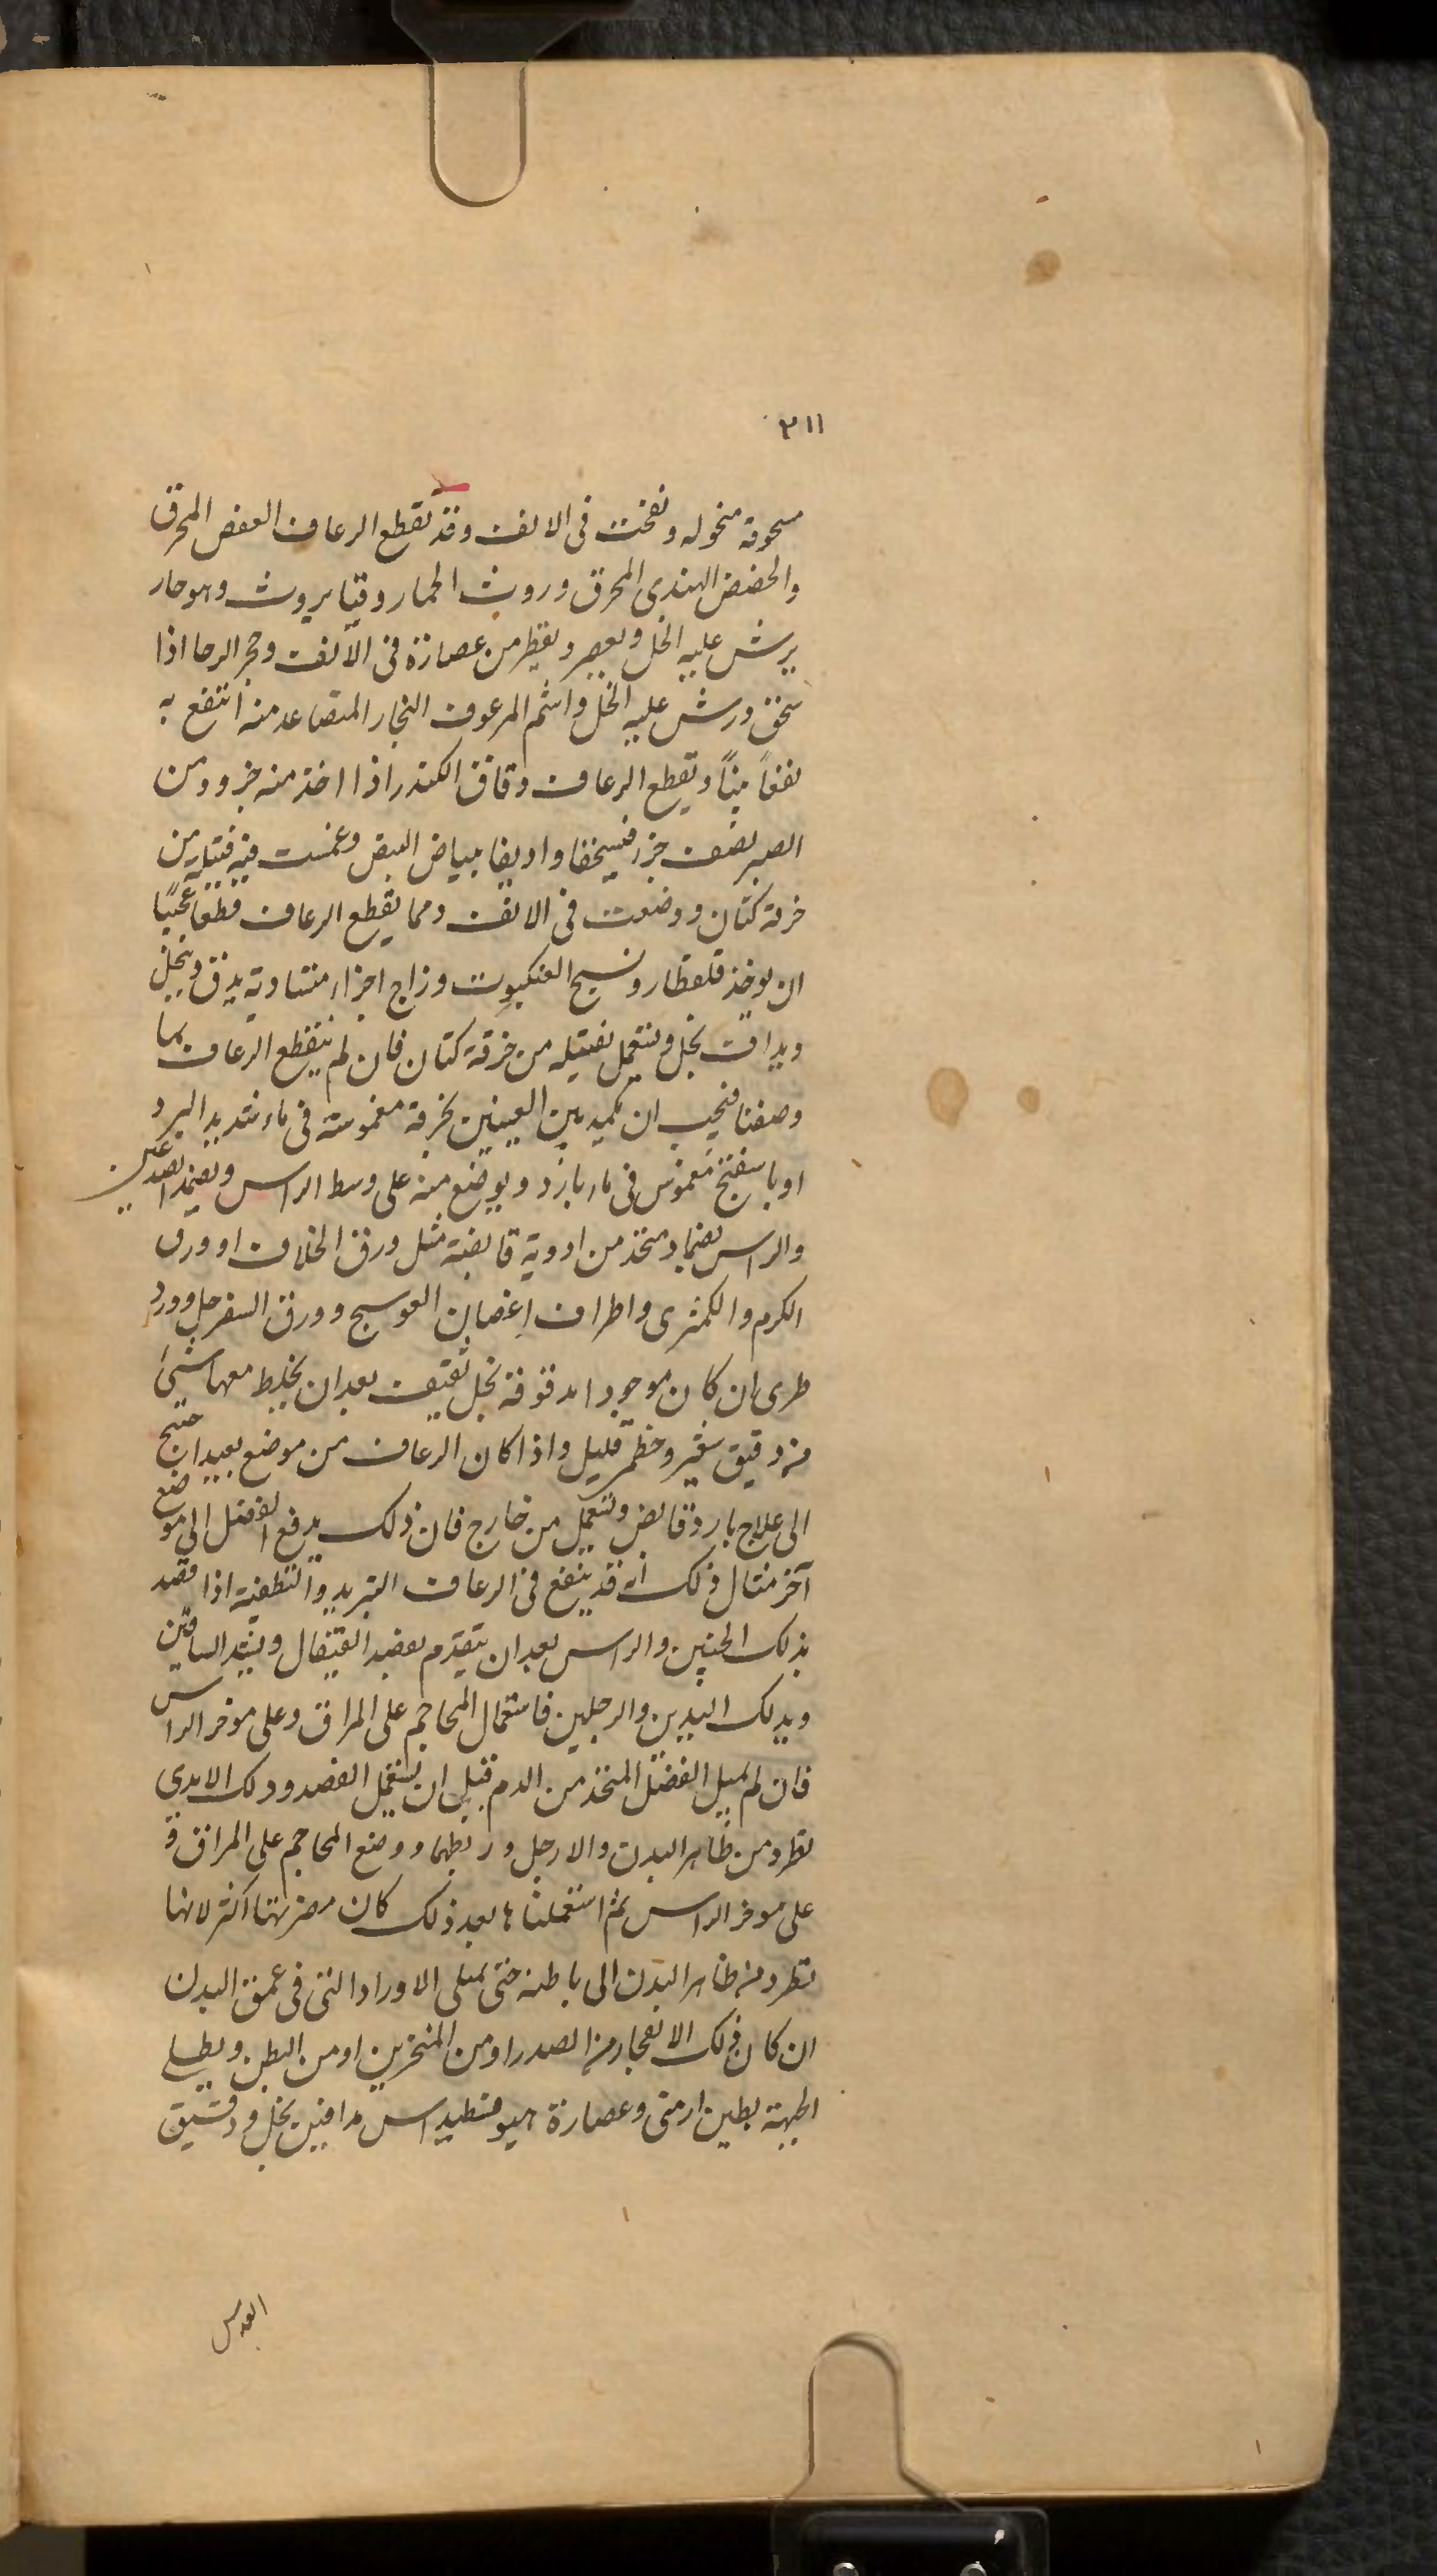 ٣١١
مسحوقة منخوله ونفخت فى الانف وقد يقطع الرعاف العفص المحرق
والحضض الهندى المحرق وروث الحمار وقتا يروث وهو حار
يرش عليه الخل ويعصر ويقطر من عصارة فى الانف وحجر الرحا اذا
سخن ورش عليه الخل واشم المرعوف البخار المتصاعد منه انتفع به
نفعاً بيناً ويقطع الرعاف دقاق الكندر اذا اخذ منه جزو ومن
الصبر نصف جزء فيسحقا واديفا ببياض البيض وغمست فيه فتيله من
خرقة كتان ووضعت فى الانف ومما يقطع الرعاف قطعا عجيبًا
ان يوخذ قلقطار ونسيج العنكبوت وزاج اجزاء متساوية يدق وينخل
ويداف بخل وتستعمل بفتيله من خرقة كتان فان لم ينقطع الرعاف بما
وصفنا فيجب ان يكمد بين العينين بخرقة مغموسة فى ماء شديد البرد
او باسفنج مغموس فى ماء بارد ويوضع منه على وسط الراس ويضمد الصدغين
والراس بضماد متخذ من ادوية قابضة مثل ورق الخلاف او ورق
الكرم والكمثرى واطراف اغصان العوسج وورق السفرجل وورد
طرى ان كان موجودا مدقوقة بخل ثقيف بعد ان يخلط معها شئ
من دقيق شعير وخطمى قليل واذا كان الرعاف من موضع بعيد احتيج
الى علاج بارد قابض وتستعمل من خارج فان ذلك يدفع الفضل الى موضع
آخر مثال ذلك انه قد ينفع فى الرعاف التبريد والتطفيه اذا قصد
بذلك الجبين والراس بعد ان يتقدم بفصد القيفال ويشد الساقين
ويدلك اليدين والرجلين فاستعمال المحاجم على المراق وعلى موخر الراس
فان لم يميل الفضل المتخذ من الدم قبل ان يستعمل الفصد ودلك الايدى
يطرد من ظاهر البدن والارجل وربطهما ووضع المحاجم على المراق و
على موخر الراس ثم استعملنا ها بعد ذلك كان مضرتها اكثر لانها
تطرد من ظاهر البدن الى باطنه حتى يمتلى الاوراد التى فى عمق البدن
ان كان ذلك الانفجار من الصدر او من المنخرين او من البطن ويطلى
الجبهة بطين ارمنى وعصارة هيوفسطيداس مدافين بخل ودقيق
العدس